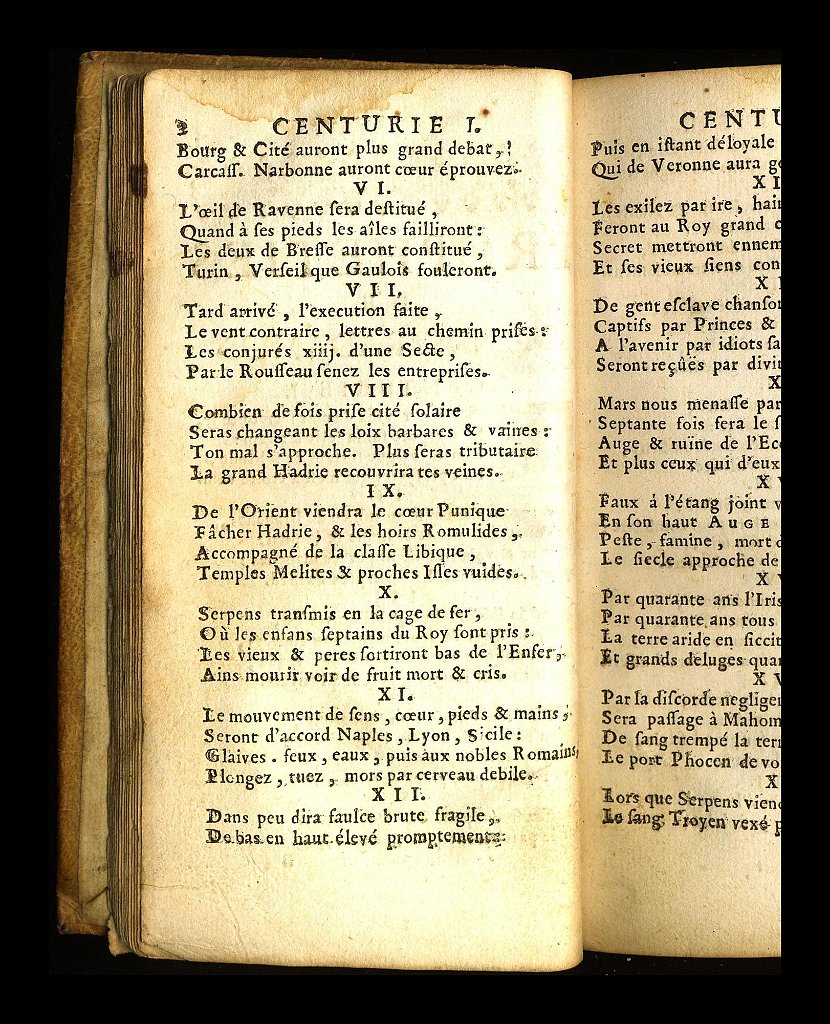 2 CENTURIE I.
Bourg & Cité auront plus grand debat, !
Carcaſſ. Narbonne auront cœur éprouvez.
VI.
L'œil de Ravenne ſera deſtitué,
Quand à ſes pieds les aîles failliront:
Les deux de Breſſe auront conſtitué,
Turin, Verſeil que Gaulois fouleront.
VII.
Tard arrivé, l'execution faite,
Le vent contraire, lettres au chemin priſes:
Les conjurés xiiij. d'une Secte,
Par le Rouſſeau ſenez les entrepriſes.
VIII.
Combien de fois priſe cité ſolaire
Seras changeant les loix barbares & vaines:
Ton mal s'approche. Plus ſeras tributaire
La grand Hadrie recouvrira tes veines.
IX.
De l'Orient viendra le cœur Punique
Fâcher Hadrie, & les hoirs Romulides,
Accompagné de la claſſe Libique,
Temples Melites & proches Iſles vuides.
X.
Serpens tranſmis en la cage de fer,
Où les enfans ſeptains du Roy ſont pris:
Les vieux & peres ſortiront bas de l'Enfer,
Ains mourir voir de fruit mort & cris.
XI.
Le mouvement de ſens, cœur, pieds & mains,
Seront d'accord Naples, Lyon, Sicile:
Glaives. feux, eaux, puis aux nobles Romains,
Plongez, tuez, mors par cerveau debile.
XII.
Dans peu dira faulce brute fragile,
De bas en haut élevé promptement:
CENTU
Puis en iſtant déloyale
Qui de Veronne aura g
XI
Les exilez par ire, hai
Feront au Roy grand c
Secret mettront ennem
Et ſes vieux ſiens con
XI
De gent eſclave chanſo
Captifs par Princes &
A l'avenir par idiots ſa
Seront reçûës par divi
X
Mars nous menaſſe par
Septante fois fera le ſ
Auge & ruïne de l'Ec
Et plus ceux qui d'eux
XV
Faux á l'étang joint v
En ſon haut AUGE
Peſte, famine, mort d
Le ſiecle approche de
XV
Par quarante ans l'Iris
Par quarante ans tous
La terre aride en ſiccit
Et grands déluges qua
XV
Par la diſcorde negligen
Sera paſſage à Mahom
De ſang trempé la terr
Le port Phocen de vo
X
Lors que Serpens vien
Le ſang Troyen vexé p